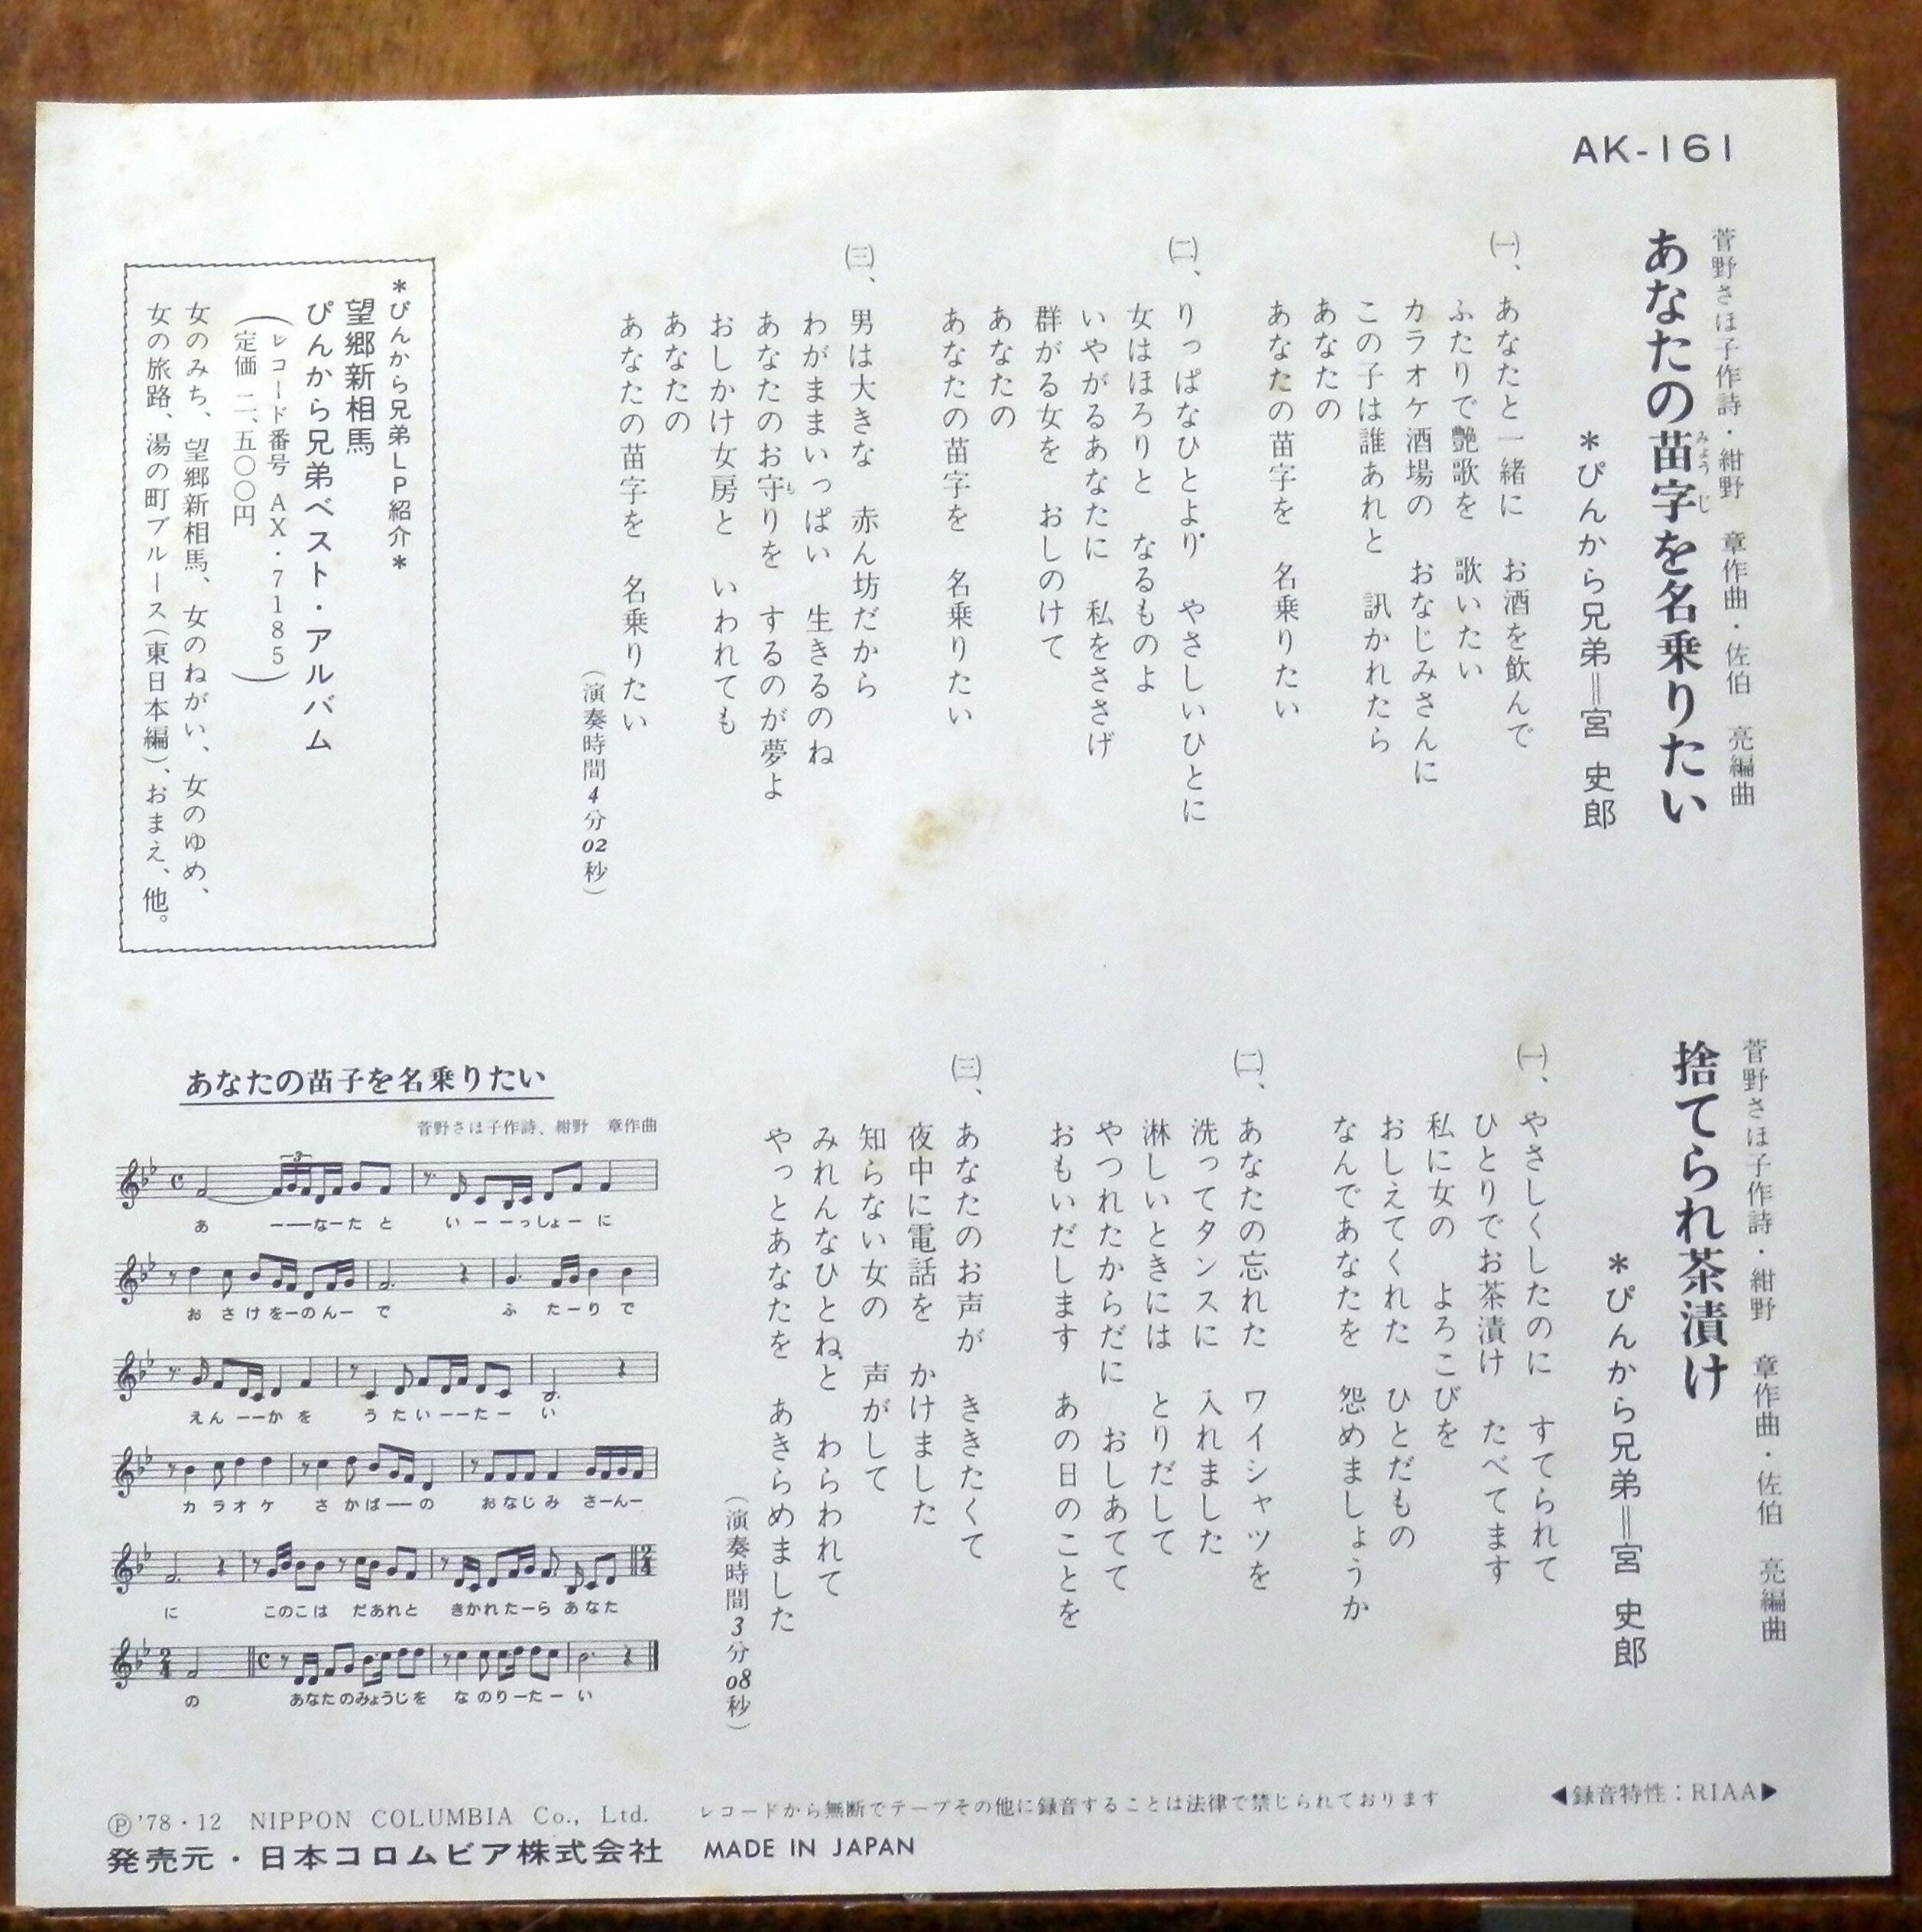 AK-161
菅野さほ子作詩・紺野 章作曲・佐伯 亮編曲
あなたの苗字を名乗りたい
みょう じ
＊ぴんから兄弟＝宮 史郎
㈠、あなたと一緒に お酒を飲んで
ふたりで艶歌を 歌いたい
カラオケ酒場の おなじみさんに
この子は誰あれと 訊かれたら
あなたの
あなたの苗字を 名乗りたい
㈡、りっぱなひとより やさしいひとに
女はほろりと なるものよ
いやがるあなたに 私をささげ
群がる女を おしのけて
あなたの
あなたの苗字を 名乗りたい
㈢、男は大きな 赤ん坊だから
わがままいっぱい 生きるのね
あなたのお守りを するのが夢よ
も
おしかけ女房と いわれても
あなたの
あなたの苗字を 名乗りたい
（演奏時間4分02秒）
＊ぴんから兄弟LP紹介＊
望郷新相馬
ぴんから兄弟ベスト・アルバム
（レコード番号 AX・7185
定価 二、五〇〇円）
女のみち、望郷新相馬、女のねがい、女のゆめ、
女の旅路、湯の町ブルース（東日本編）、おまえ、他。
菅野さほ子作詩・紺野 章作曲・佐伯 亮編曲
捨てられ茶漬け
＊ぴんから兄弟＝宮 史郎
㈠、やさしくしたのに すてられて
ひとりでお茶漬け たべてます
私に女の よろこびを
おしえてくれた ひとだもの
なんであなたを 怨めましょうか
㈡、あなたの忘れた ワイシャツを
洗ってタンスに 入れました
淋しいときには とりだして
やつれたからだに おしあてて
おもいだします あの日のことを
㈢、あなたのお声が ききたくて
夜中に電話を かけました
知らない女の 声がして
みれんなひとねと わらわれて
やっとあなたを あきらめました
（演奏時間3分08秒）
あなたの苗子を名乗りたい
菅野さほ子作詩、紺野 章作曲
3
あ ー──なーた と い ー ーっしょー に
お さ け をーのんー で ふ たーり で
えん ーーか を う た い ーーたー い
カ ラ オ ケ さ か ばー─ の お な じ み さーんー
に このこは だあれと きかれたーら あなた
2/4
2/4
の あなたのみょうじを な のりーたー い
Ⓟ'78・12 NIPPON COLUMBIA Co., Ltd.
発売元・日本コロムビア株式会社
レコードから無断でテープその他に録音することは法律で禁じられております
MADE IN JAPAN
◀録音特性：RIAA▶